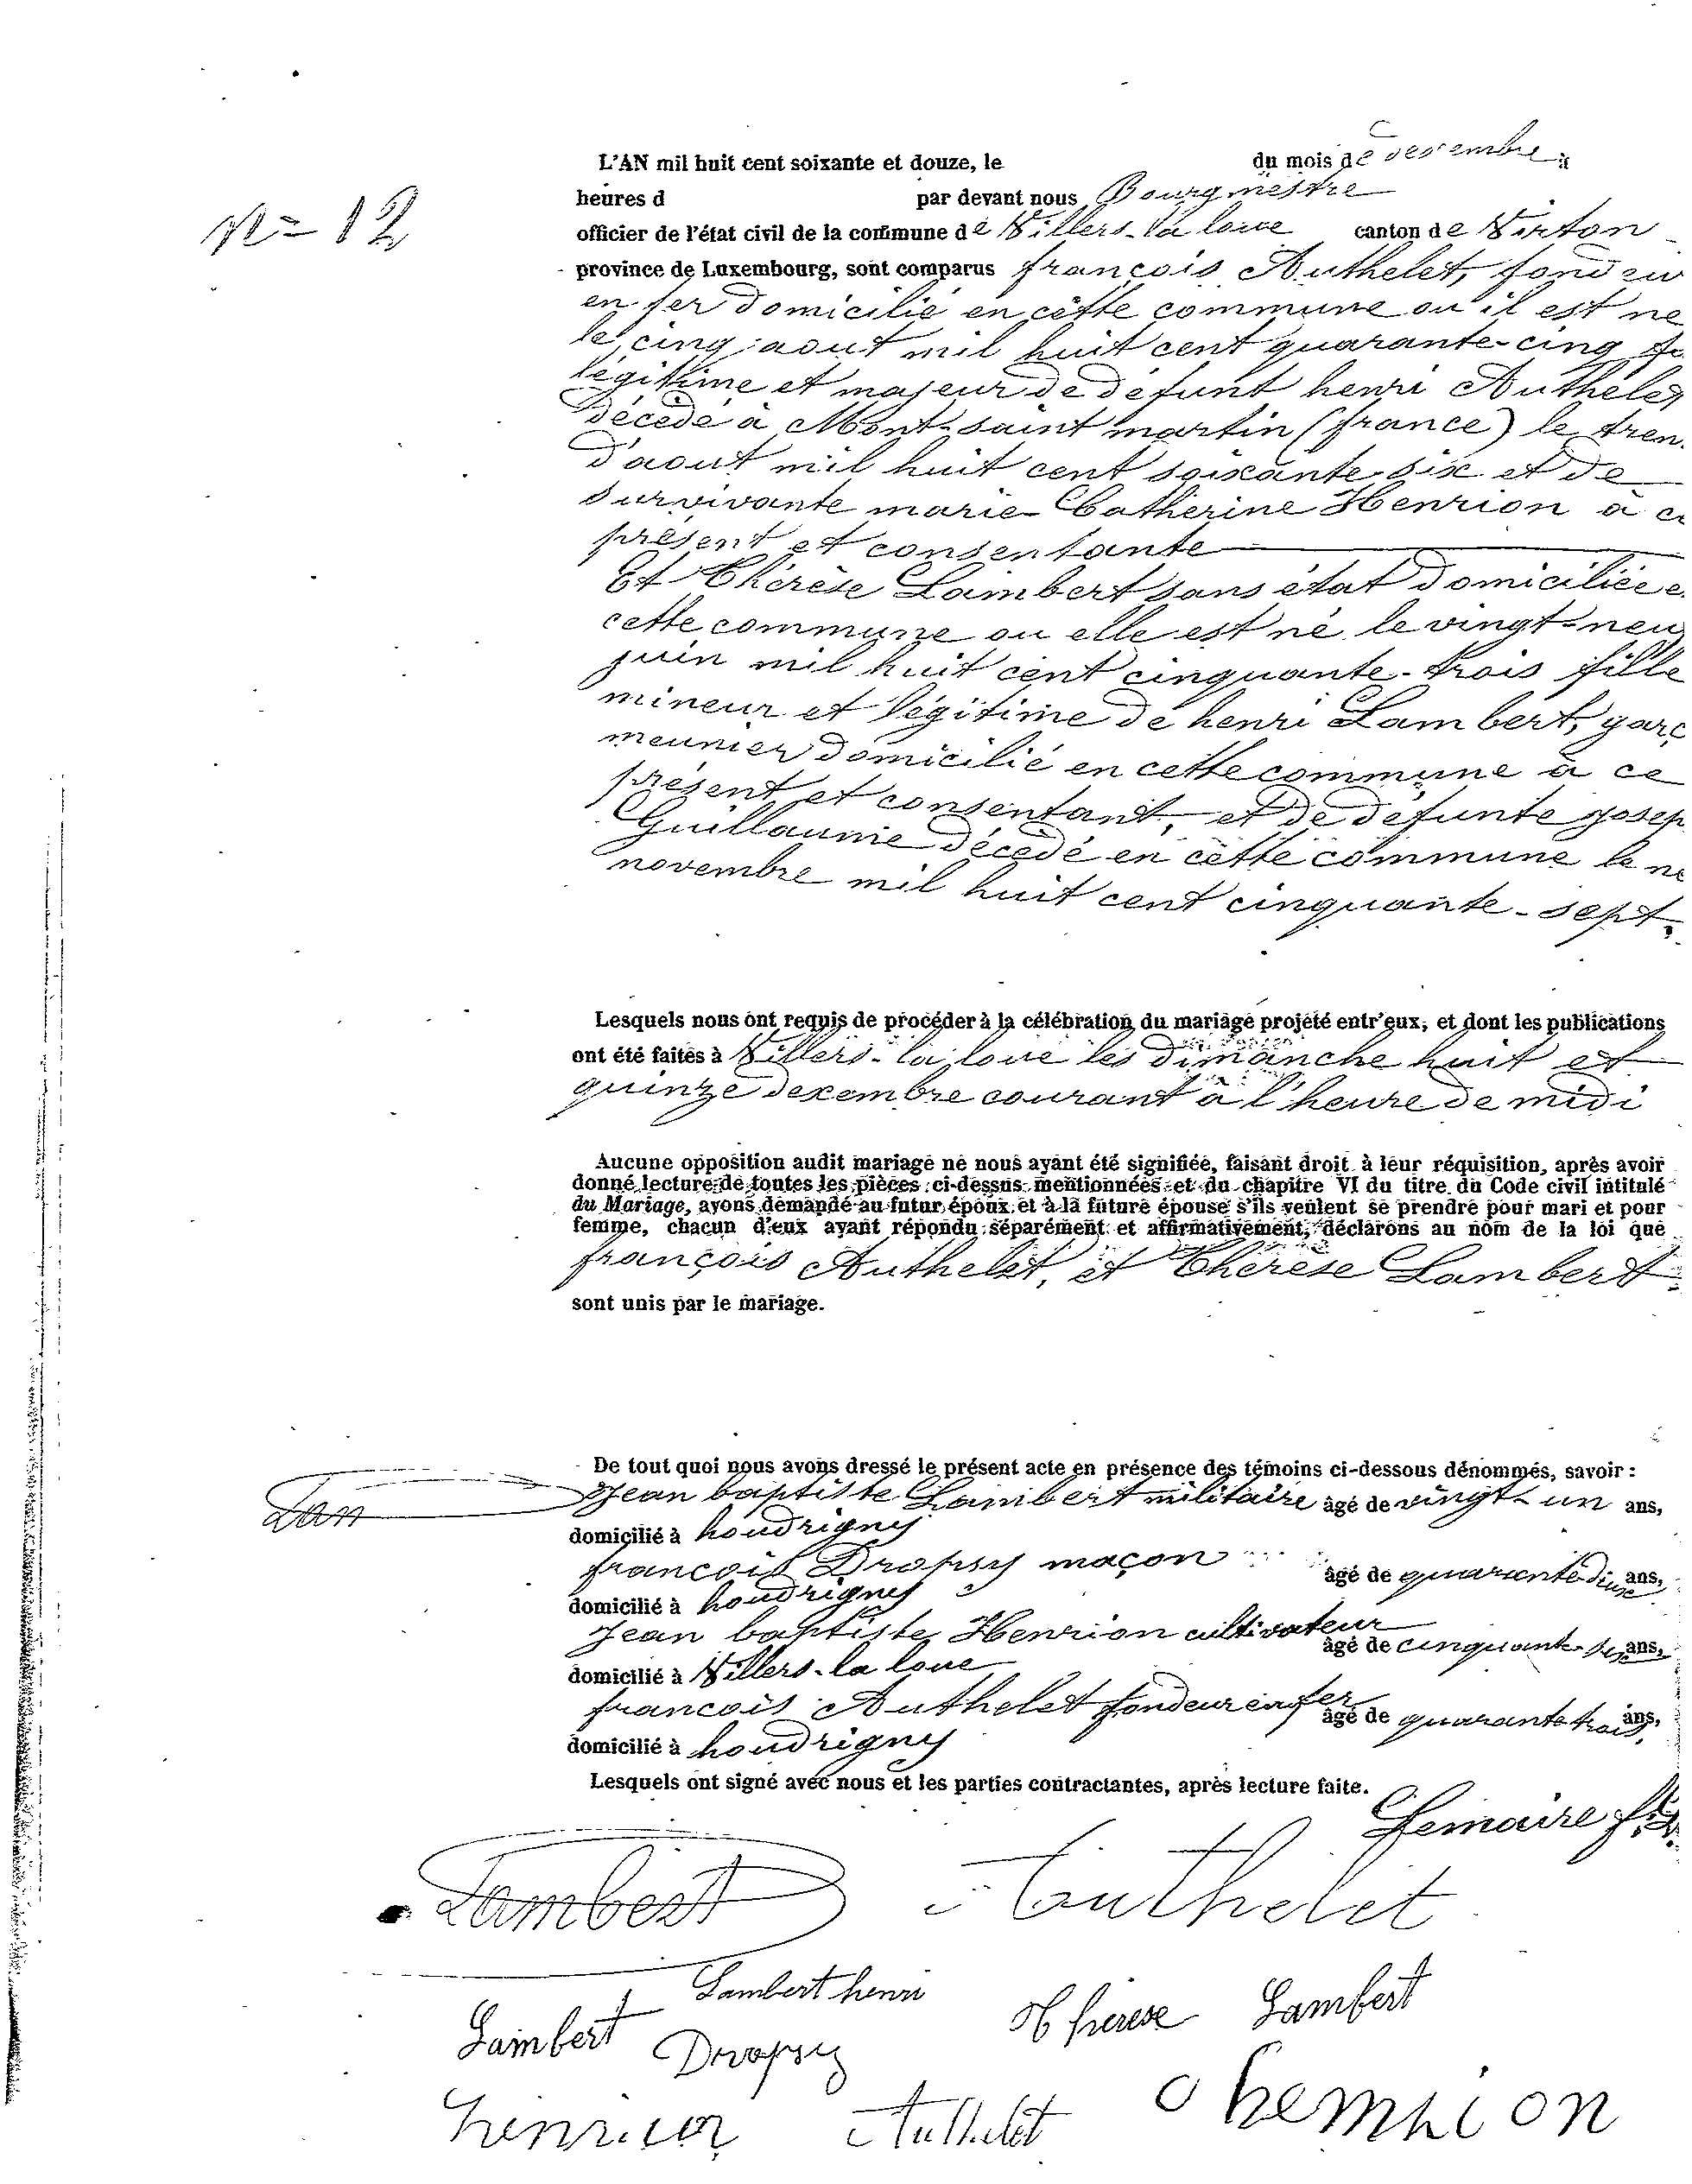 L'AN mil huit cent soixante et douze, le du mois de decembre à
n= 12
heures d par devant nous Bourgmestre
officier de l'état civil de la commune de Villers-la loue canton de Virton
province de Luxembourg, sont comparus françois Authelet, fondeur
en fer domicilié en cette commune ou il est né
le cinq aout mil huit cent quarante-cinq
légitime et majeur de défunt henri Authelet
décédé à Mont-saint martin (france) le tren
d'aout mil huit cent soixante six et de
survivante marie-Catherine Henrion à ce
présent et consentante
Et Thérèse Lambert sans état domiciliée e
cette commune ou elle est né le vingt-neu
juin mil huit cent cinquante-trois fille
mineur et légitime de henri Lambert, garç
meunier domicilié en cette commune à ce
présent et consentant, et de défunte josep
Guillaume décédé en cette commune le ne
novembre mil huit cent cinquante-sept.
Lesquels nous ont requis de procéder à la célébration du mariage projeté entr'eux, et dont les publications
ont été faites à Villers-la loue les dimanche huit et
quinze decembre courant à l'heure de midi
Aucune opposition audit mariage ne nous ayant été signifiée, faisant droit à leur réquisition, après avoir
donné lecture de toutes les pièces ci-dessus mentionnées et du chapitre VI du titre du Code civil intitulé
du Mariage, avons demandé au futur époux et à la future épouse s'ils veulent se prendre pour mari et pour
femme, chacun d'eux ayant répondu séparément et affirmativement, déclarons au nom de la loi que
françois Authelet, et Thérèse Lambert
sont unis par le mariage.
De tout quoi nous avons dressé le présent acte en présence des témoins ci-dessous dénommés, savoir :
Jean baptiste Lambert militaire âgé de vingt-un ans,
Lam
domicilié à houdrigny
francois Dropsy maçon âgé de quarante deux ans,
domicilié à houdrigny
Jean baptiste Henrion cultivateur âgé de cinquante-six ans,
domicilié à Villers-la loue
francois Authelet fondeur en fer âgé de quarante trois ans,
domicilié à houdrigny
Lesquels ont signé avec nous et les parties contractantes, après lecture faite.
Lemaire
Lambert Authelet
Lambert henri
Lambert Dropsy Thérèse Lambert
henrion Authelet henrion